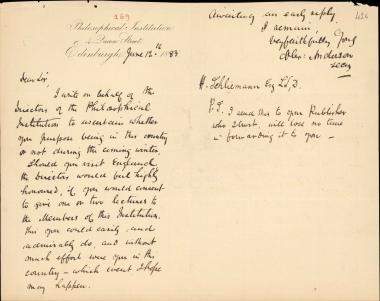 169
Philosophical Institution
4 Queen Street
Edinburgh, June 12th 1883
Dear Sir,
I write on behalf of the
Directors of the Philosophical
Institution to ascertain whether
you purpose being in this country
or not during the coming winter.
Should you visit England
the Directors would feel highly
honoured, if you would consent
to give one or two lectures to
the Members of this Institution.
This you could easily and
admirably do, and without
much effort were you in this
country – which event I hope
may happen.
424
Awaiting an early reply
I remain,
very faithfully yours
Anderson
secy
H. Schliemann Esq
P.S. I send this to your Publisher
who I trust will lose no time
in forwarding it to you –